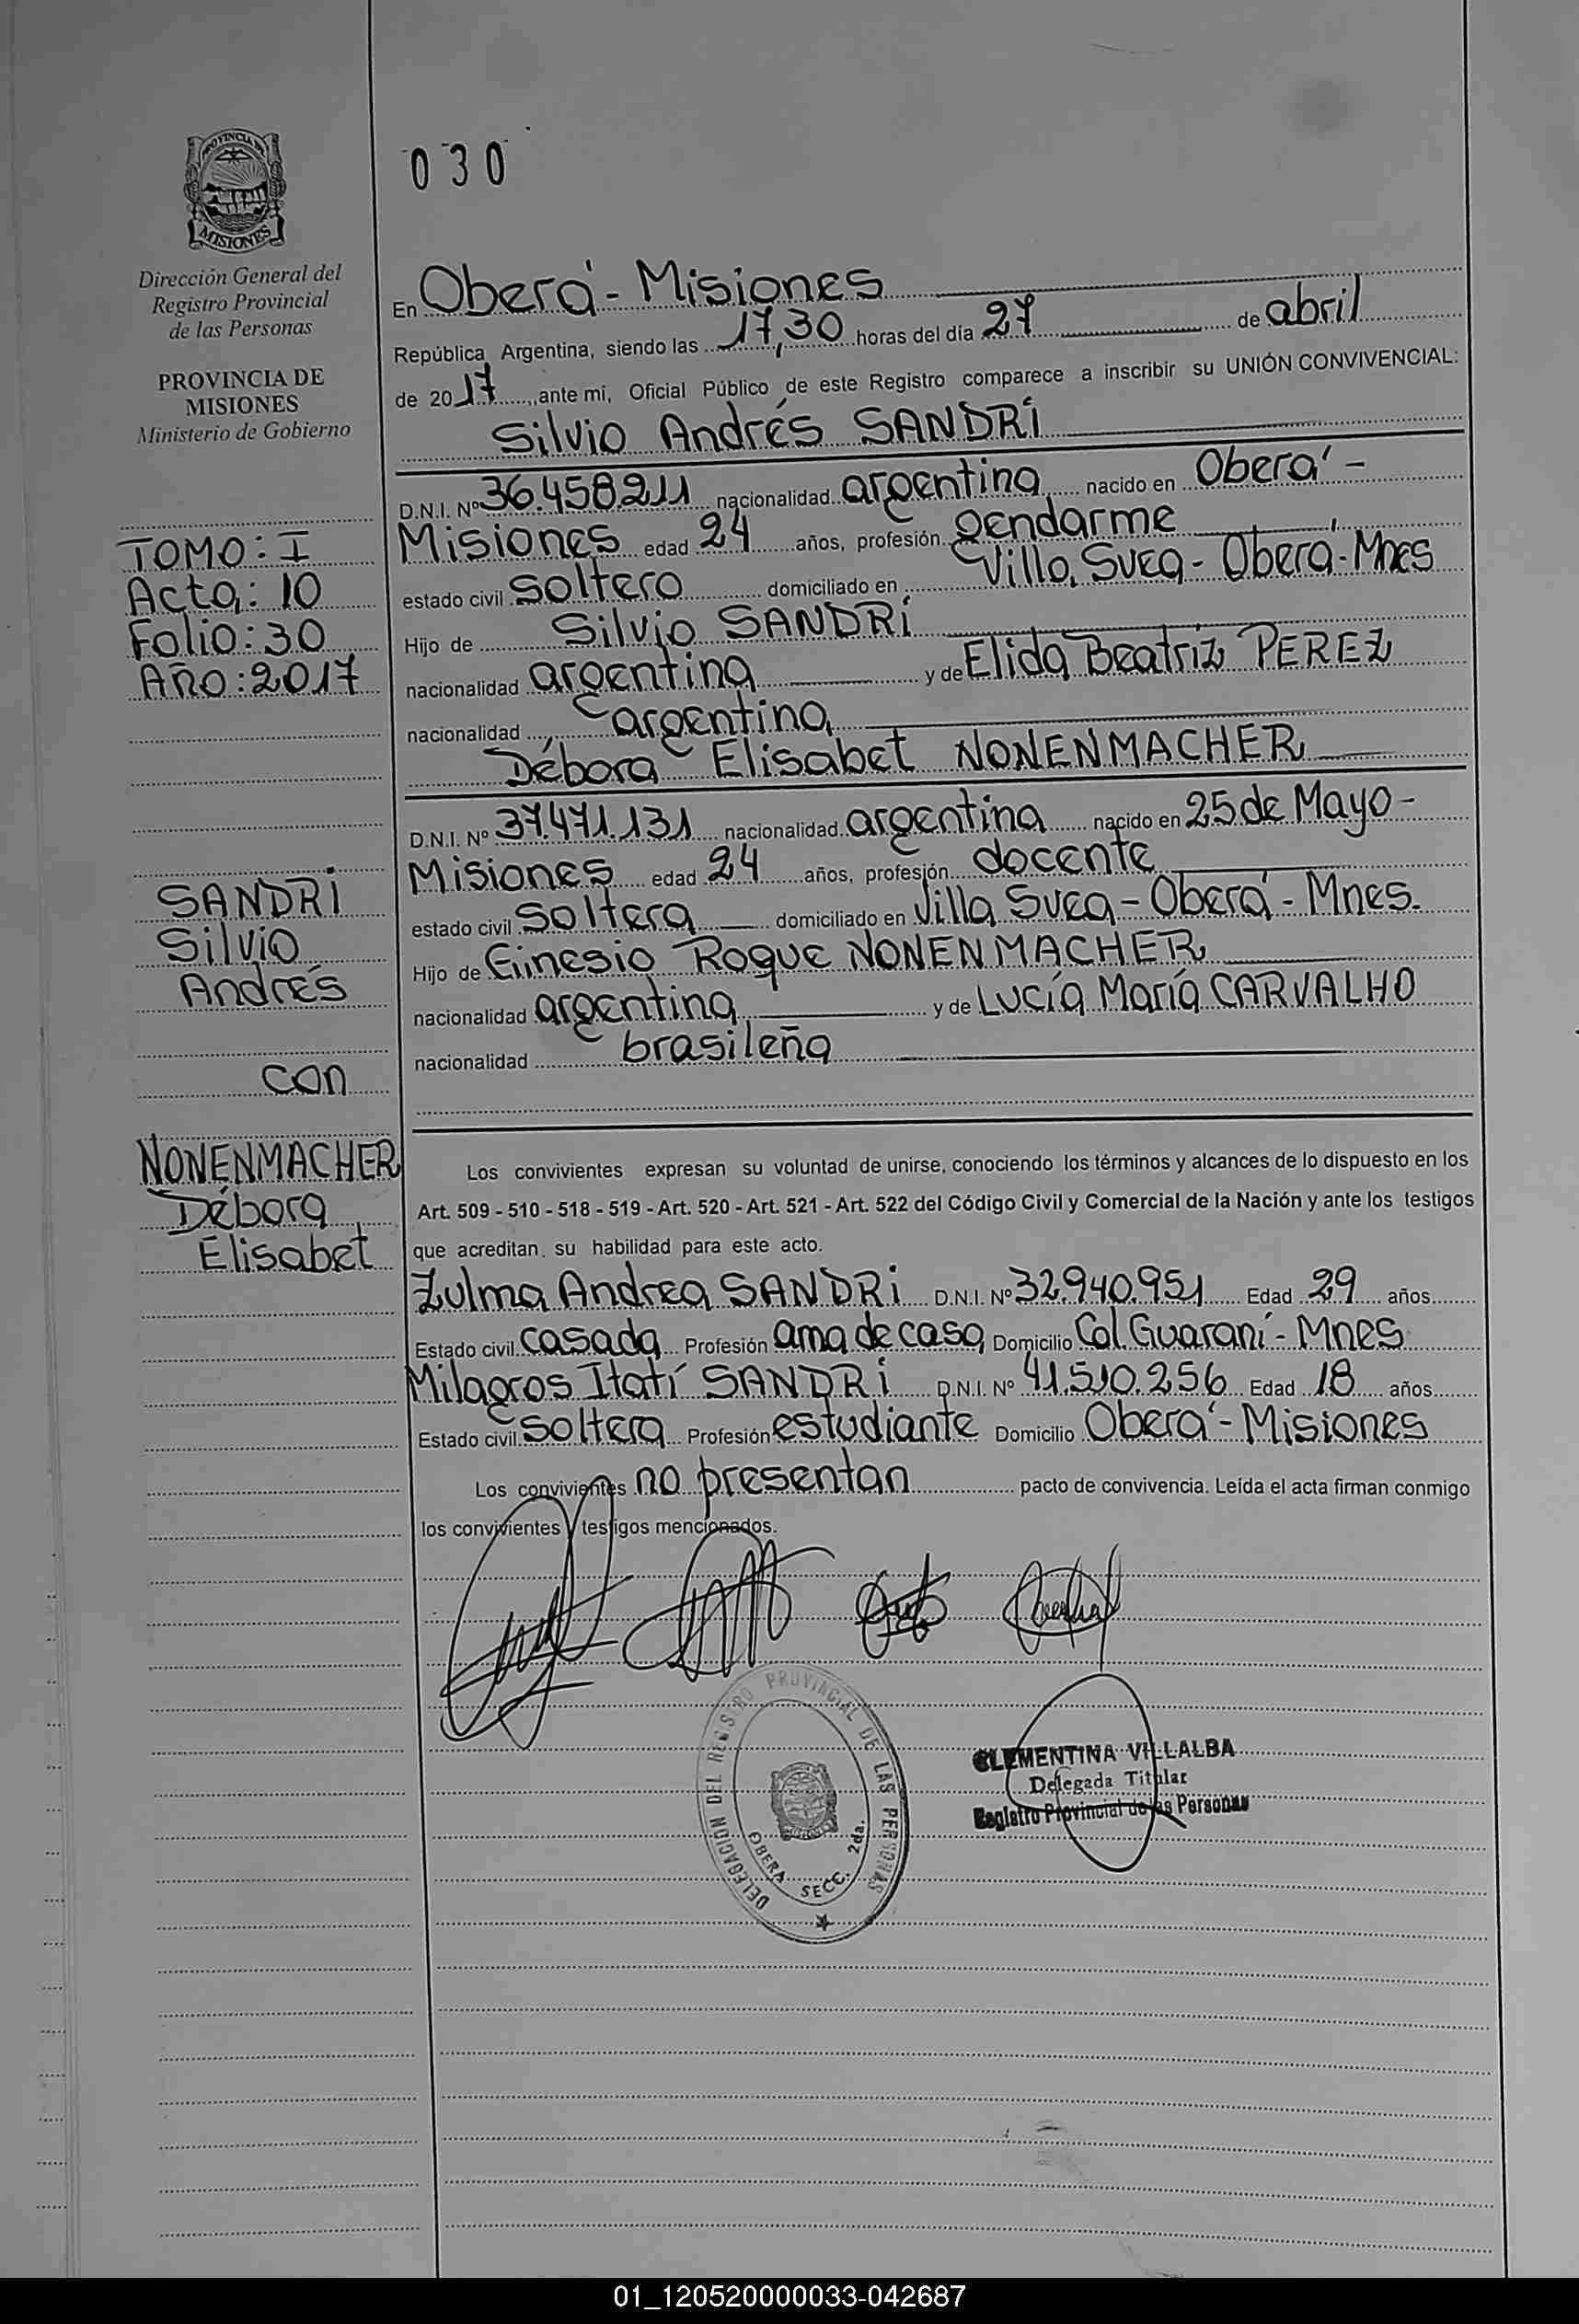 PROVINCIA DE
MISIONES
Dirección General del
Registro Provincial
de las Personas
PROVINCIA DE
MISIONES
Ministerio de Gobierno
TOMO: I
Acta: 10
Folio: 30
Año: 2017
SANDRI
Silvio
Andrés
con
NONENMACHER
Débora
Elisabet
030
En Oberá - Misiones
República Argentina, siendo las 17,30 horas del día 27 de abril
de 2017, ante mí, Oficial Público de este Registro comparece a inscribir su UNIÓN CONVIVENCIAL:
Silvio Andrés SANDRI
D.N.I. Nº 36.458.211 nacionalidad argentina nacido en Oberá -
Misiones edad 24 años, profesión gendarme
estado civil soltero domiciliado en Villa Svea - Oberá - Mnes
Hijo de Silvio SANDRI
nacionalidad argentina y de Elida Beatriz PEREZ
nacionalidad argentina
Débora Elisabet NONENMACHER
D.N.I. Nº 37.471.131 nacionalidad argentina nacido en 25 de Mayo -
Misiones edad 24 años, profesión docente
estado civil soltera domiciliado en Villa Svea - Oberá - Mnes.
Hijo de Ginesio Roque NONENMACHER
nacionalidad argentina y de Lucía María CARVALHO
nacionalidad brasileña
Los convivientes expresan su voluntad de unirse, conociendo los términos y alcances de lo dispuesto en los
Art. 509 - 510 - 518 - 519 - Art. 520 - Art. 521 - Art. 522 del Código Civil y Comercial de la Nación y ante los testigos
que acreditan su habilidad para este acto.
Zulma Andrea SANDRI D.N.I. Nº 32.940.951 Edad 29 años
Estado civil casada Profesión ama de casa Domicilio Col. Guaraní - Mnes
Milagros Itatí SANDRI D.N.I. Nº 41.510.256 Edad 18 años
Estado civil soltera Profesión estudiante Domicilio Oberá - Misiones
Los convivientes no presentan pacto de convivencia. Leída el acta firman conmigo
los convivientes y testigos mencionados.
DELEGACION DEL REGISTRO PROVINCIAL DE LAS PERSONAS
OBERA SECC. 2da.
CLEMENTINA VILLALBA
Delegada Titular
Registro Provincial de las Personas
01_120520000033-042687